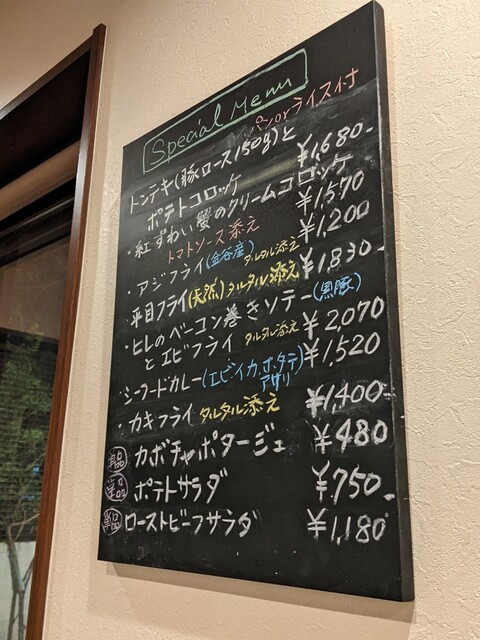 Special Menu
パン or ライス付
トンテキ(豚ロース150g)と
ポテトコロッケ ¥1,680-
・紅ずわい蟹のクリームコロッケ
トマトソース添え ¥1,570
・アジフライ(金谷産)タルタル添え ¥1,200
平目フライ(天然)タルタル添え ¥1,830-
・ヒレのベーコン巻きソテー(黒豚)
とエビフライ タルタル添え ¥2,070
・シーフードカレー(エビ・イカ・ホタテ ¥1,520
アサリ
・カキフライ タルタル添え ¥1,400-
単品 カボチャポタージュ ¥480
単品 ポテトサラダ ¥750-
単品 ローストビーフサラダ ¥1,180